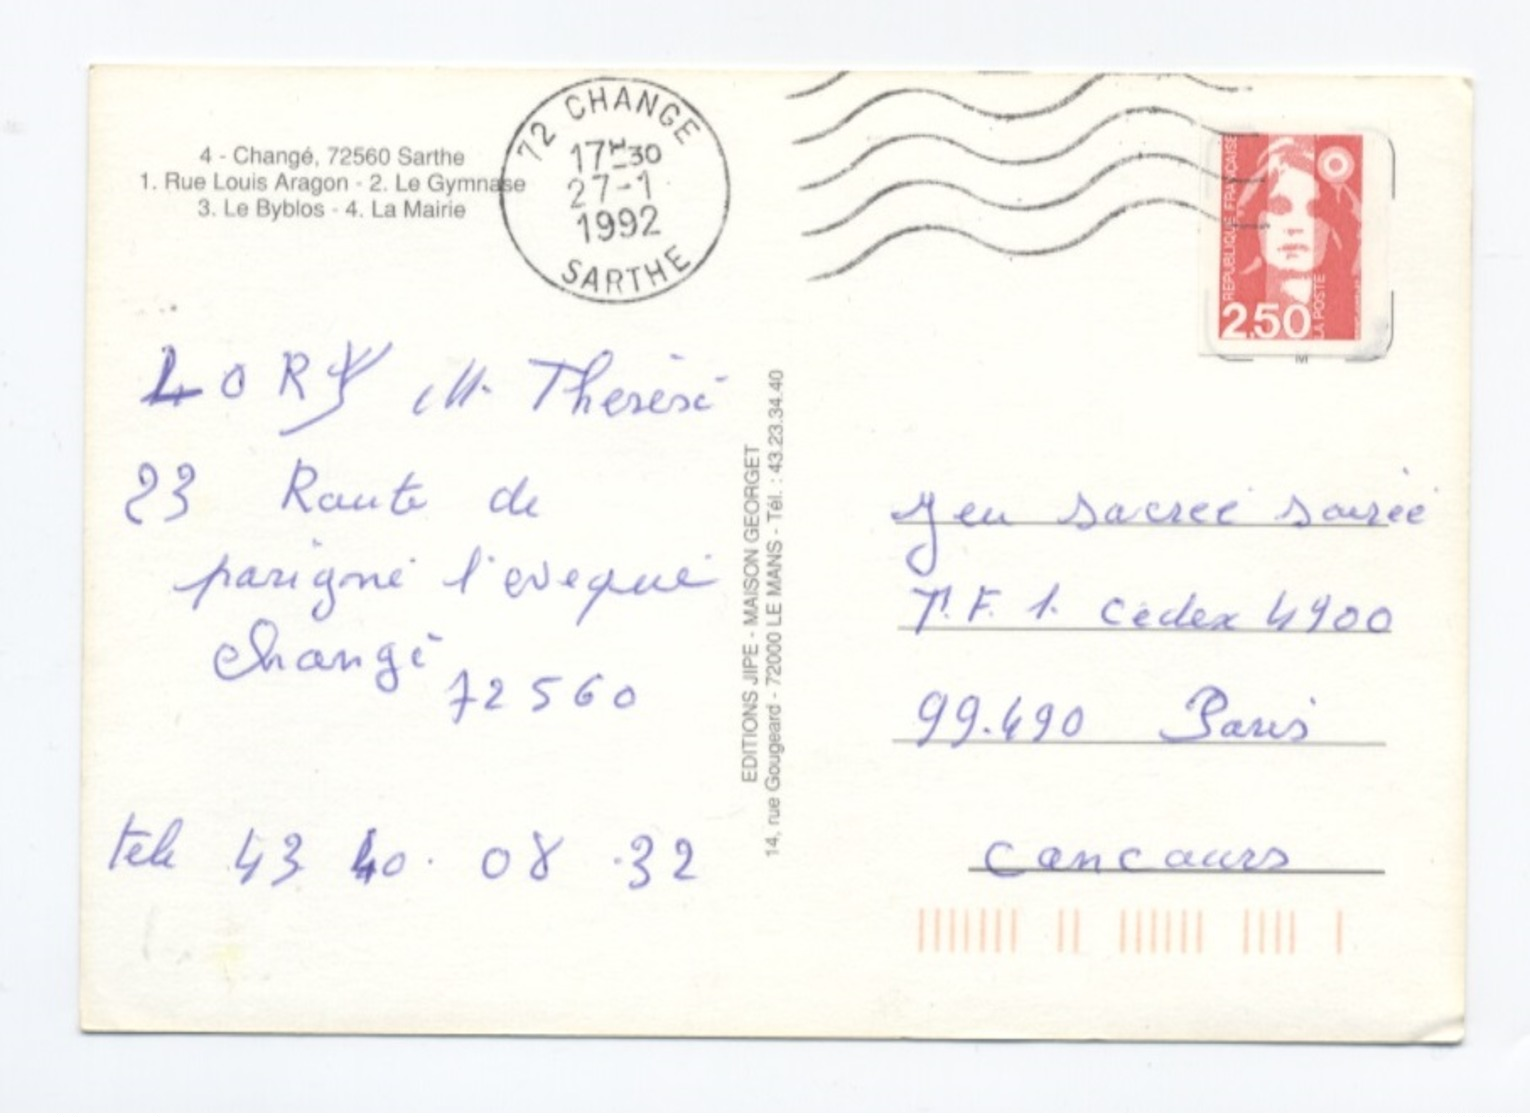 4 - Changé, 72560 Sarthe
1. Rue Louis Aragon - 2. Le Gymnase
3. Le Byblos - 4. La Mairie
72 CHANGE
17H30
27-1
1992
SARTHE
REPUBLIQUE FRANÇAISE
2,50
LA POSTE
M
LORY M. Thérèse
23 Route de
parigné l'eveque
Changé
72560
tele 43 40. 08 .32
EDITIONS JIPE - MAISON GEORGET
14, rue Gougeard - 72000 LE MANS - Tél. : 43.23.34.40
Jeu sacrée soirée
T.F. 1. Cedex 4900
99.490 Paris
Concours